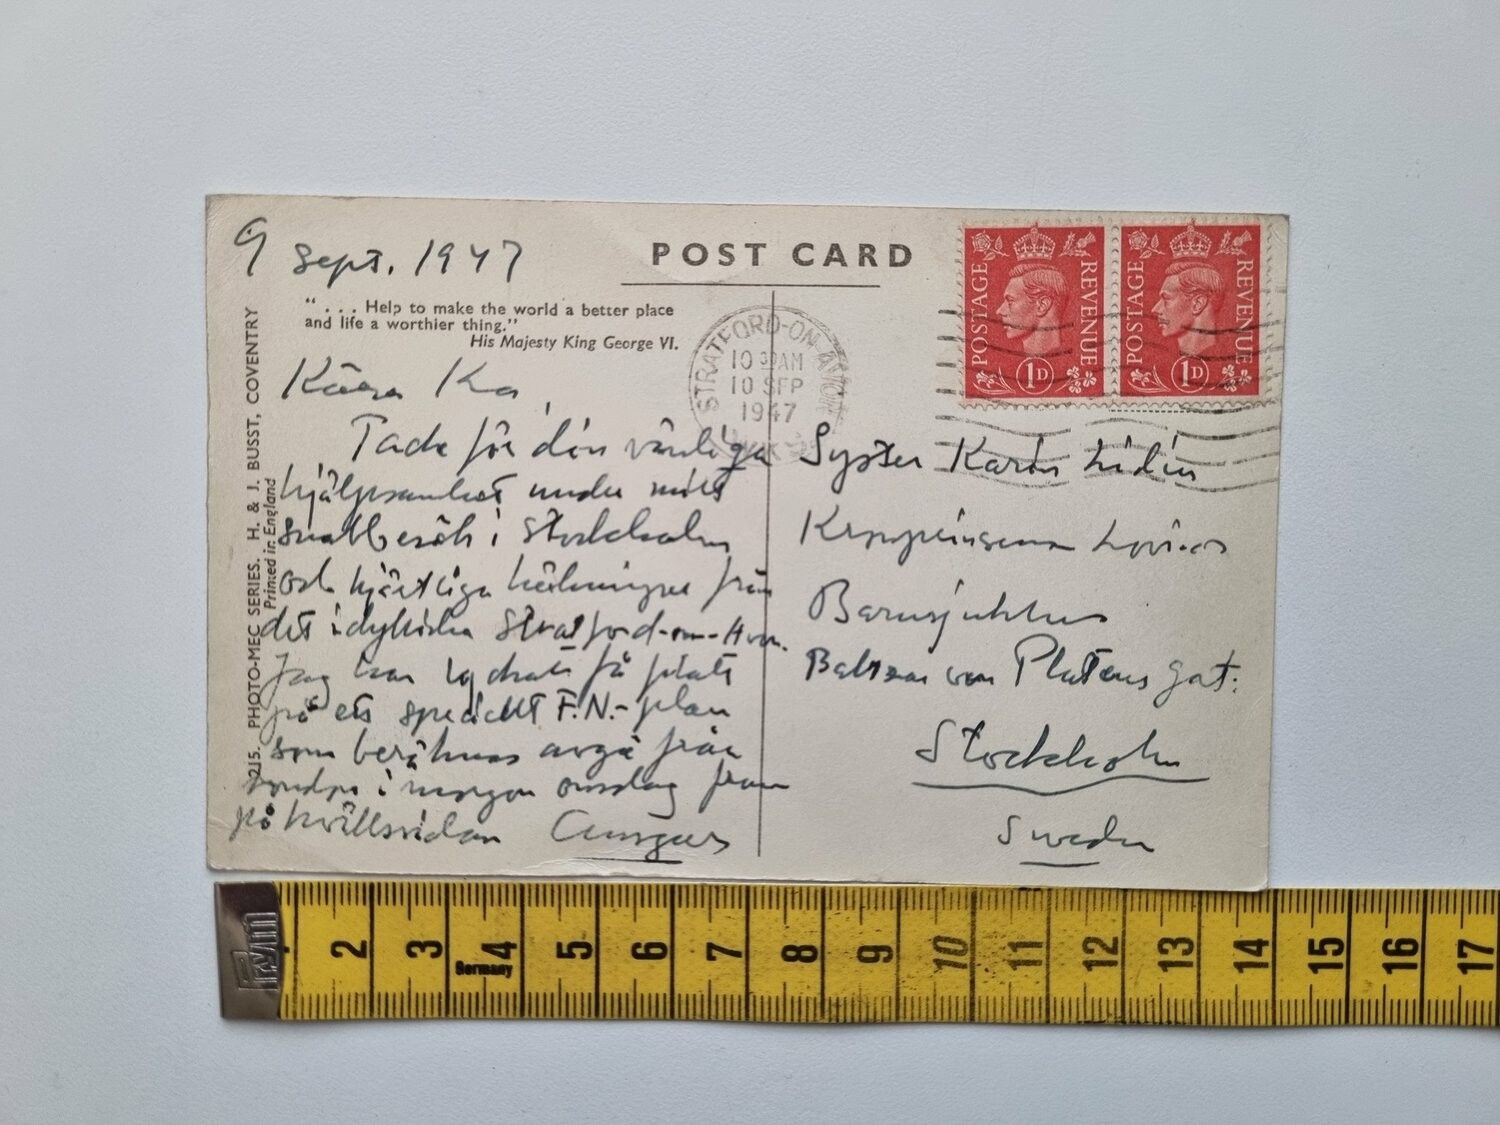 9 Sept. 1947
POST CARD
"... Help to make the world a better place
and life a worthier thing."
His Majesty King George VI.
215. PHOTO-MEC SERIES. H. & J. BUSST, COVENTRY
Printed in England
STRATFORD-ON-AVON
10 30 AM
10 SEP
1947
POSTAGE REVENUE
1D
POSTAGE REVENUE
1D
Kära Ka,
Tack för din vänliga
hjälpsamhet under mitt
snabbesök i Stockholm
och hjärtliga hälsningar från
det idylliska Stratford-on-Avon.
Jag har lyckats få plats
på ett speciellt F.N.-plan
som beräknas avgå från
i morgon onsdag fram
på kvällssidan
Syster Karin Lidin
Kronprinsessan Lovisas
Barnsjukhus
Baltzar von Platens gat.
Stockholm
Sweden
Germany
Prym
2 3 4 5 6 7 8 9 10 11 12 13 14 15 16 17